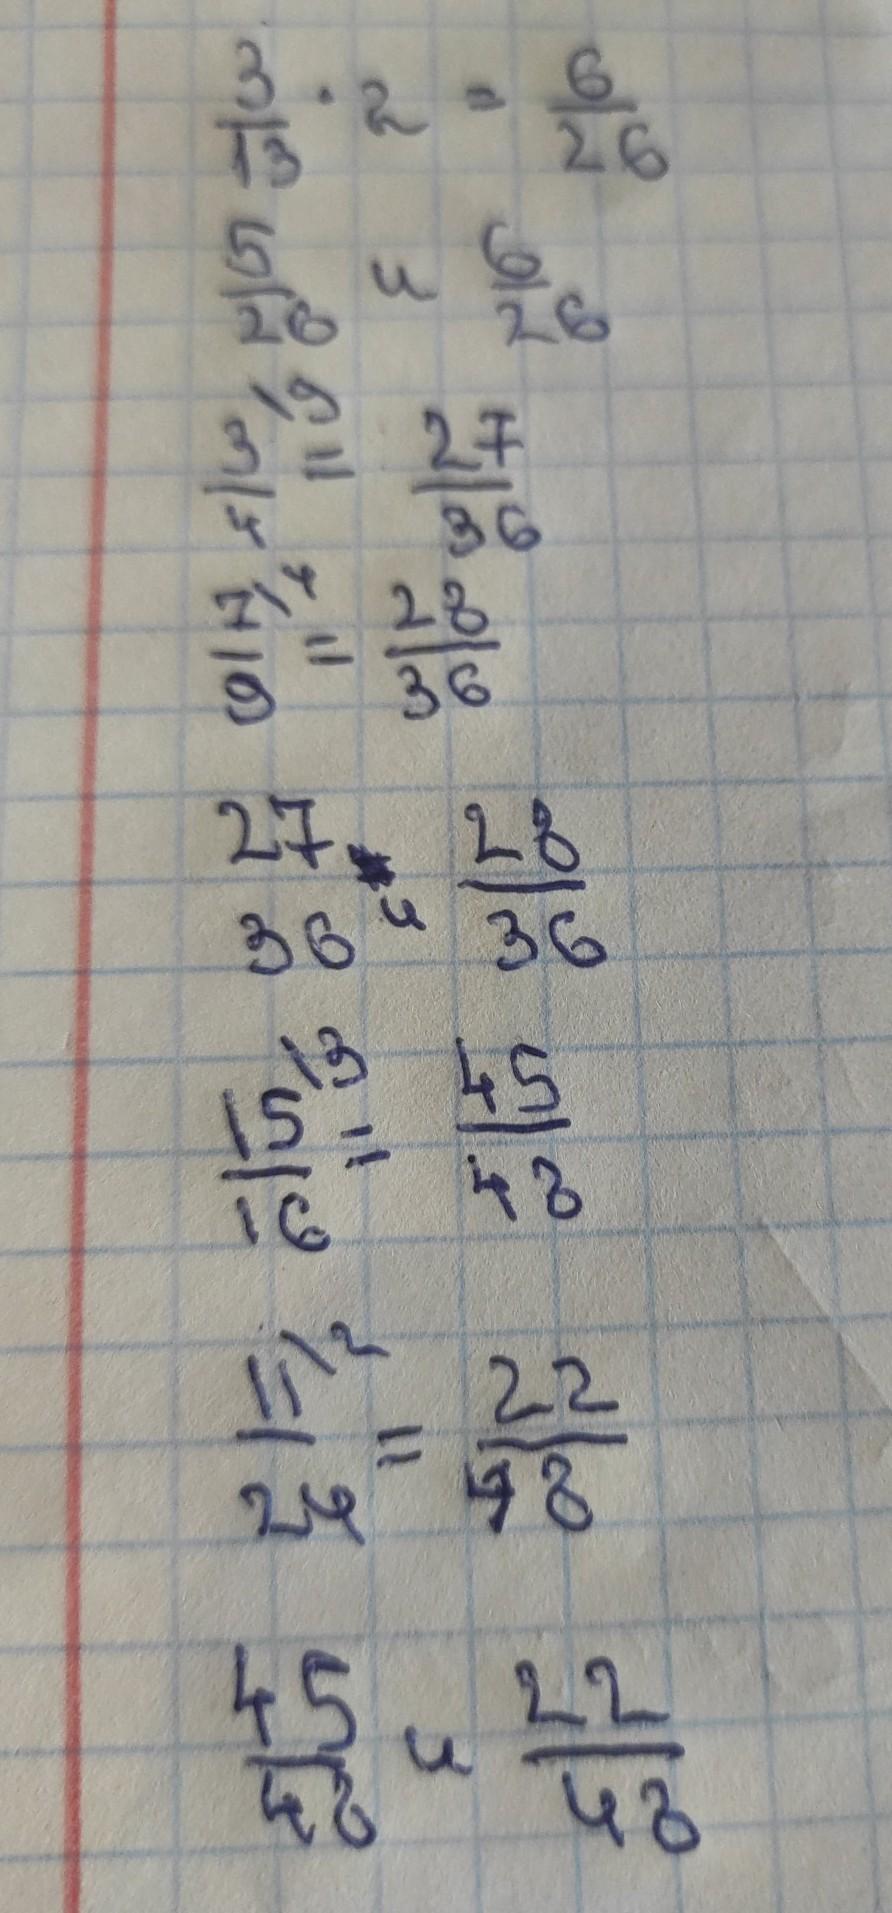 3/13 · 2 = 6/26
5/26 и 6/26
3/4 \9 = 27/36
7/9 \4 = 28/36
27/36 и 28/36
15/16 \3 = 45/48
11/24 \2 = 22/48
45/48 и 22/48